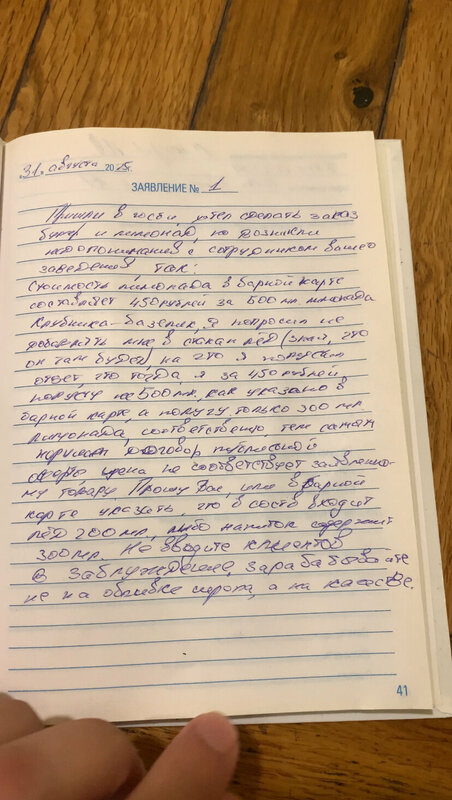 31 августа 2015г.
ЗАЯВЛЕНИЕ № 1
Пришли в гости, хотел сделать заказ
и лимонад, но возникли
недопонимания с сотрудником вашего
заведения, так:
Стоимость лимонада в барной карте
составляет 450 рублей за 500 мл. лимонада
Клубника-базелик, я попросил не
добавлять мне в стакан лёд (зная, что
он там будет) на что я получил
ответ, что тогда я за 450 рублей
получу не 500 мл, как указано в
барной карте, а получу только 300 мл
лимонада, соответственно, тем самым
договор публичной
оферты, цена не соответствует заявленно-
му товару. Прошу Вас, или в барной
карте указать, что в состав входит
лёд 200 мл, либо напиток содержит
300 мл. Не вводите клиентов
в заблуждение, зарабатывайте
не на обмане, а на качестве.
41